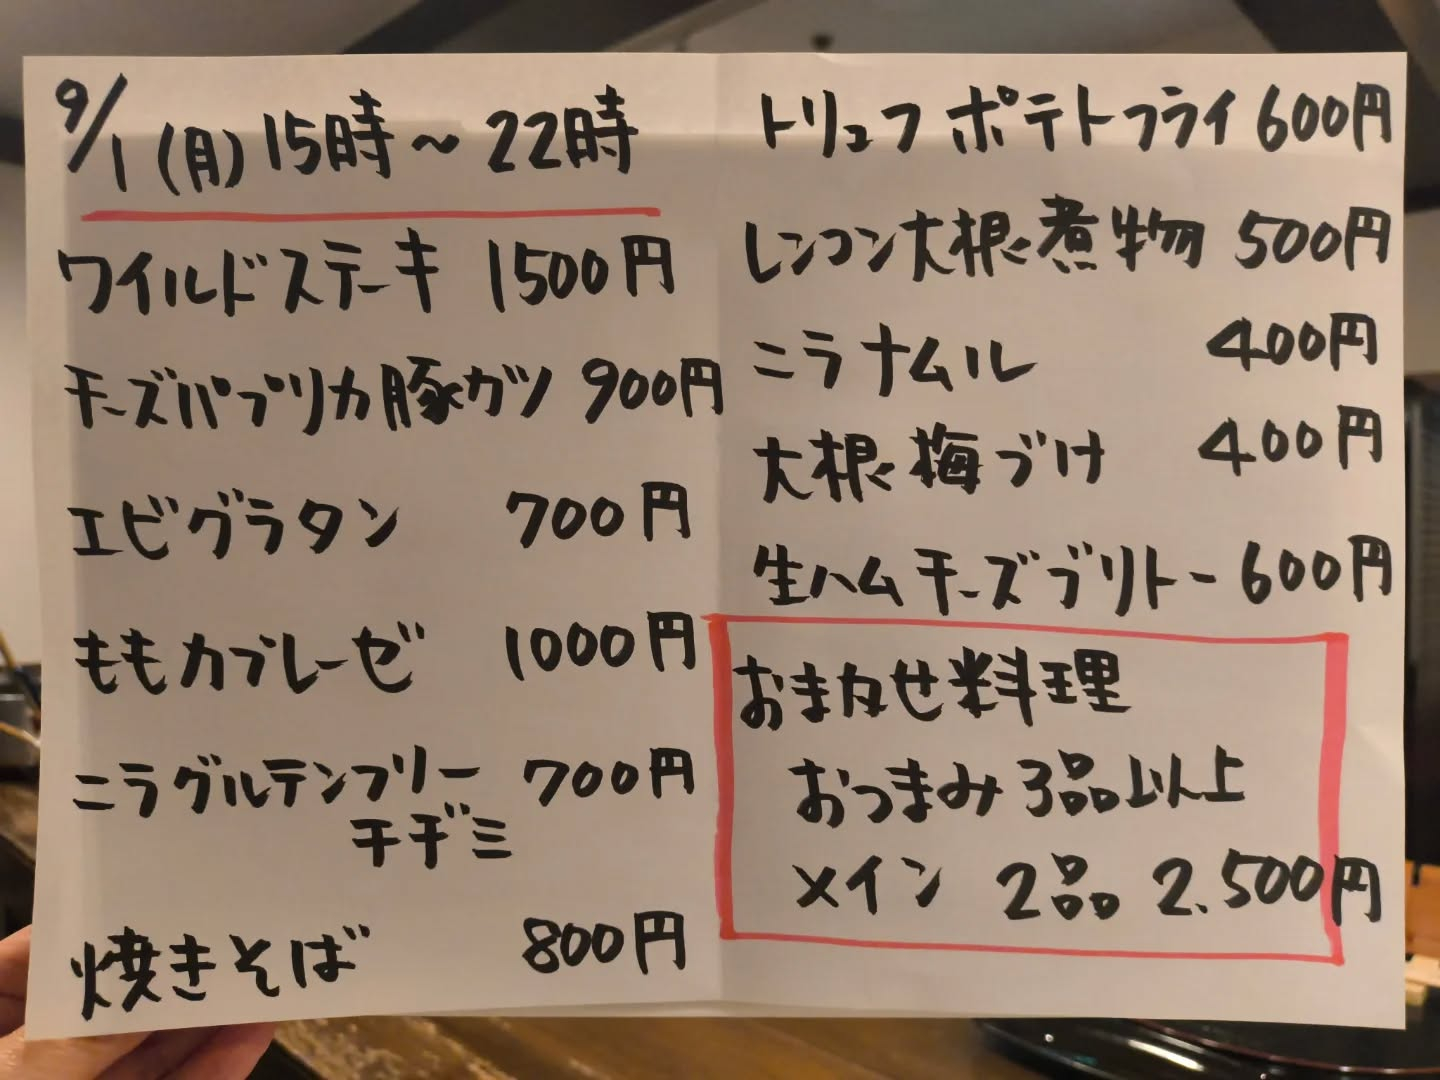 9/1(月)15時～22時
ワイルドステーキ 1500円
チーズパプリカ豚ガツ 900円
エビグラタン 700円
ももカプレーゼ 1000円
ニラグルテンフリー 700円
チヂミ
焼きそば 800円
トリュフポテトフライ 600円
レンコン大根煮物 500円
ニラナムル 400円
大根梅づけ 400円
生ハムチーズブリトー 600円
おまかせ料理
おつまみ3品以上
メイン 2品 2.500円